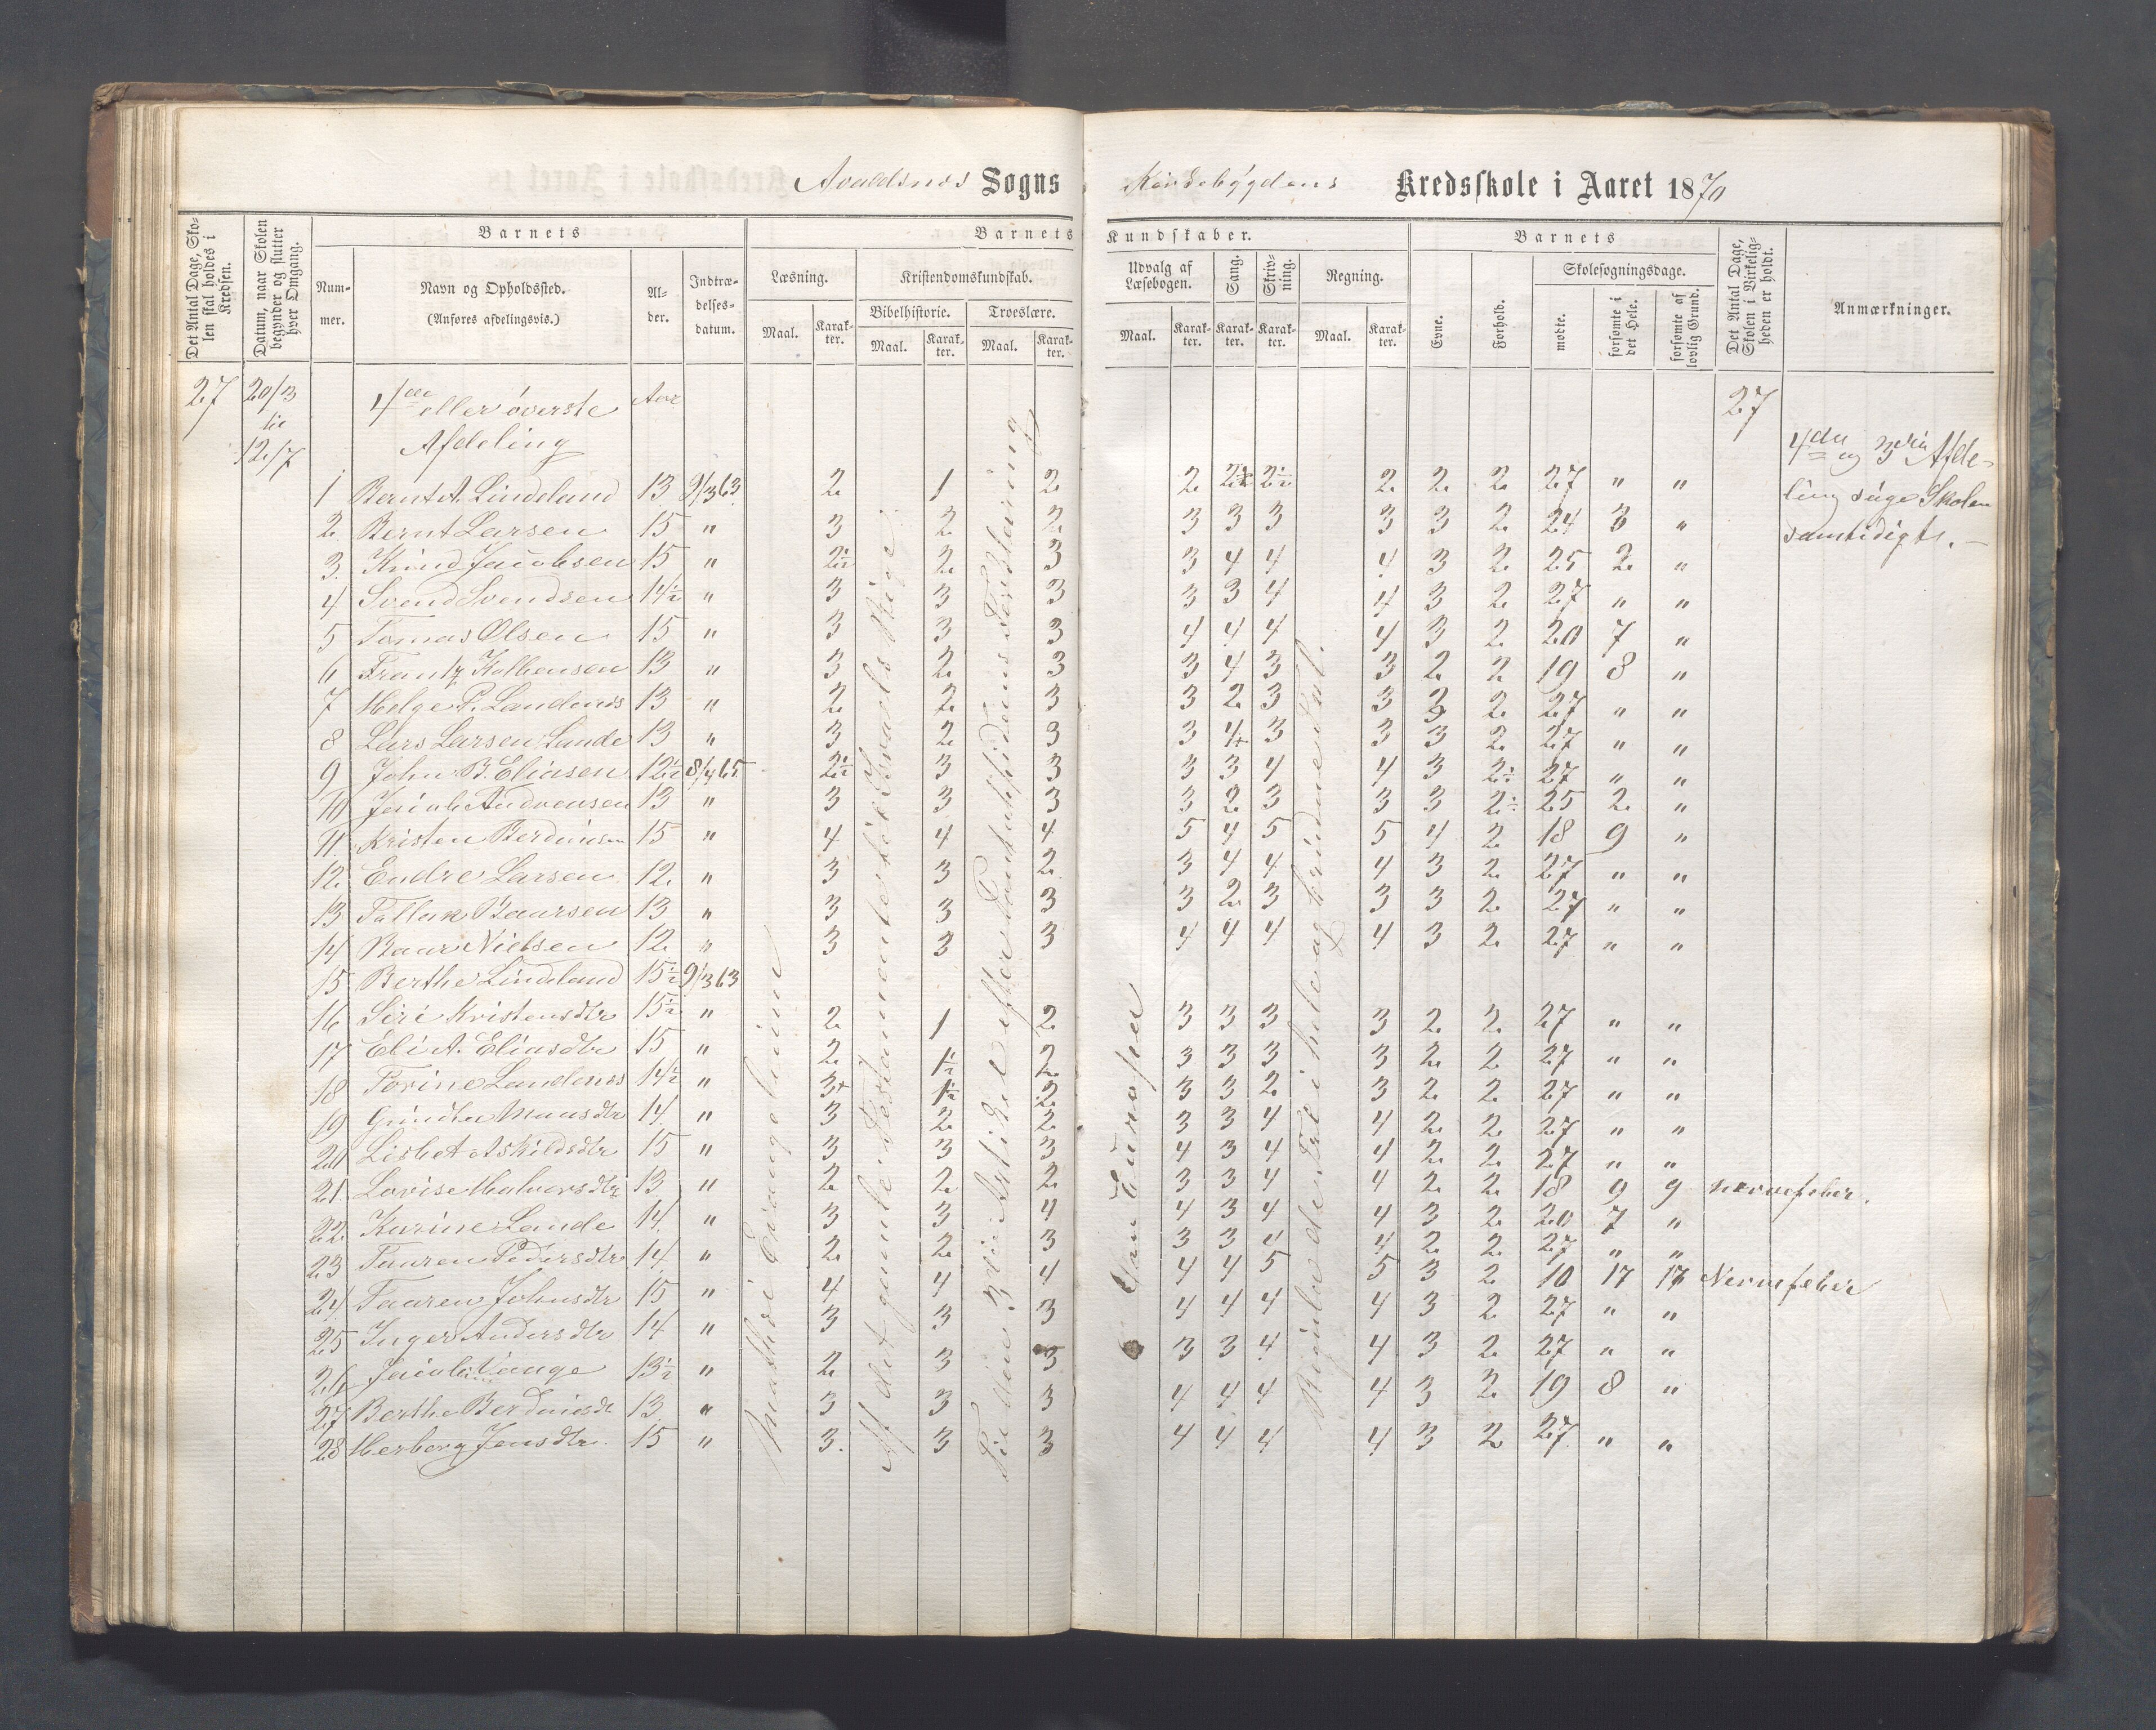 Avaldsnes Sogns Kredsskole i Aaret 1870
Det Antal Dage, Skolen skal holdes i Kredsen.
Datum, naar Skolen begynder og slutter hver Omgang.
Barnets
Nummer.
Navn og Opholdssted.
(Anføres afdelingsvis.)
Alder.
Indtrædelsesdatum.
Barnets Kundskaber.
Læsning.
Maal. Karakter.
Kristendomskundskab.
Bibelhistorie. Troeslære.
Maal. Karakter. Maal. Karakter.
Udvalg af Læsebogen.
Maal. Karakter.
Sang. Karakter.
Skrivning. Karakter.
Regning.
Maal. Karakter.
Barnets
Evne. Forhold.
Skolesøgningsdage.
mødte. forsømte i det Hele. forsømte af lovlig Grund.
Det Antal Dage, Skolen i Virkeligheden er holdt.
Anmærkninger.
27 20/3 til 12/7
4de eller øverste Afdeling
Aar
27
4de og 3die Afdeling søge Skolen samtidigt.
1 Bernt A. Lindeland 13 9/3 63 2 1 2 2 2½ 2½ 2 2 2 27 " "
2 Bernt Larsen 15 " 3 2 2 3 3 3 3 3 2 24 3 "
3. Knud Jacobsen 15 " 2½ 2 3 3 4 4 4 3 2 25 2 "
4 Svend Svendsen 14½ " 3 3 3 3 3 4 4 3 2 27 " "
5 Tomas Olsen 15 " 3 3 3 4 4 4 4 3 2 20 7 "
6 Frantz Kolbensen 13 " 3 2 3 3 4 3 3 2 2 19 8 "
7 Helge P. Landenes 13 " 2 2 3 3 2 3 3 3 2 27 " "
8 Lars Larsen Lande 13 " 3 2 3 3 4+ 3 3 3 2 27 " "
9 John B. Eliasen 12½ 8/4 65 2½ 3 3 3 3 4 4 3 2½ 27 " "
10 Jacob Andreasen 13 " 3 3 3 3 2 3 3 3 2½ 25 2 "
11 Kristen Berdinisen 15 " 4 4 4 5 4 5 5 4 2 18 9 "
12. Endre Larsen 12. " 3 3 2 3 4 4 4 3 2 27 " "
13 Tallak Baarsen 13 " 3 3 3 3 2 3 3 3 2 27 " "
14 Baar Nielsen 12. " 3 3 3 4 4 4 4 3 2 27 " "
15 Berthe Lindeland 15½ 9/3 63
16 Siri Kristensdtr 15½ " 2 1 2 3 3 3 3 2 2 27 " "
17 Eli A. Eliasdtr 15 " 2 1½ 2 3 3 3 3 2 2 27 " "
18 Torine Landenes 14½ " 3+ 1½ 2 3 3 2 3 2 2 27 " "
19 Mansdtr 14 " 3 2 2 3 3 4 4 2 2 27 " "
20 Lisbet Askildsdtr 15 " 3 3 3 4 3 4 4 2 2 27 " "
21 Lovise Halvorsdtr 13 " 2 2 2 3 3 4 4 2 2 18 9 9 nervefeber.
22 Karine Lande 14 " 3 3 4 4 3 4 4 3 2 20 7 "
23 Taaren Pedersdtr 14 " 2 2 3 3 3 4 4 2 2 27 " "
24 Taaren Johnsdtr 15 " 4 4 4 4 4 5 5 3 2 10 17 17 Nervefeber
25 Inger Andersdtr 14 " 3 3 3 4 4 4 4 3 2 27 " "
26 Vange 13½ " 2 3 3 3 3 4 4 3 2 27 " "
27 Berthe Berdinisdt 13 " 3 3 3 4 4 4 4 3 2 19 8 "
28 Herborg Jensdtr. 15 " 3. 3 3 4 4 4 4 3 2 27 " "
Matthæi Evangelium
Af det gamle Testamente til Israels Rige
Til den 3die Artikel efter Pontoppidans Forklaring
Om Europa
Regula de Tri i hele og brudne Tal.